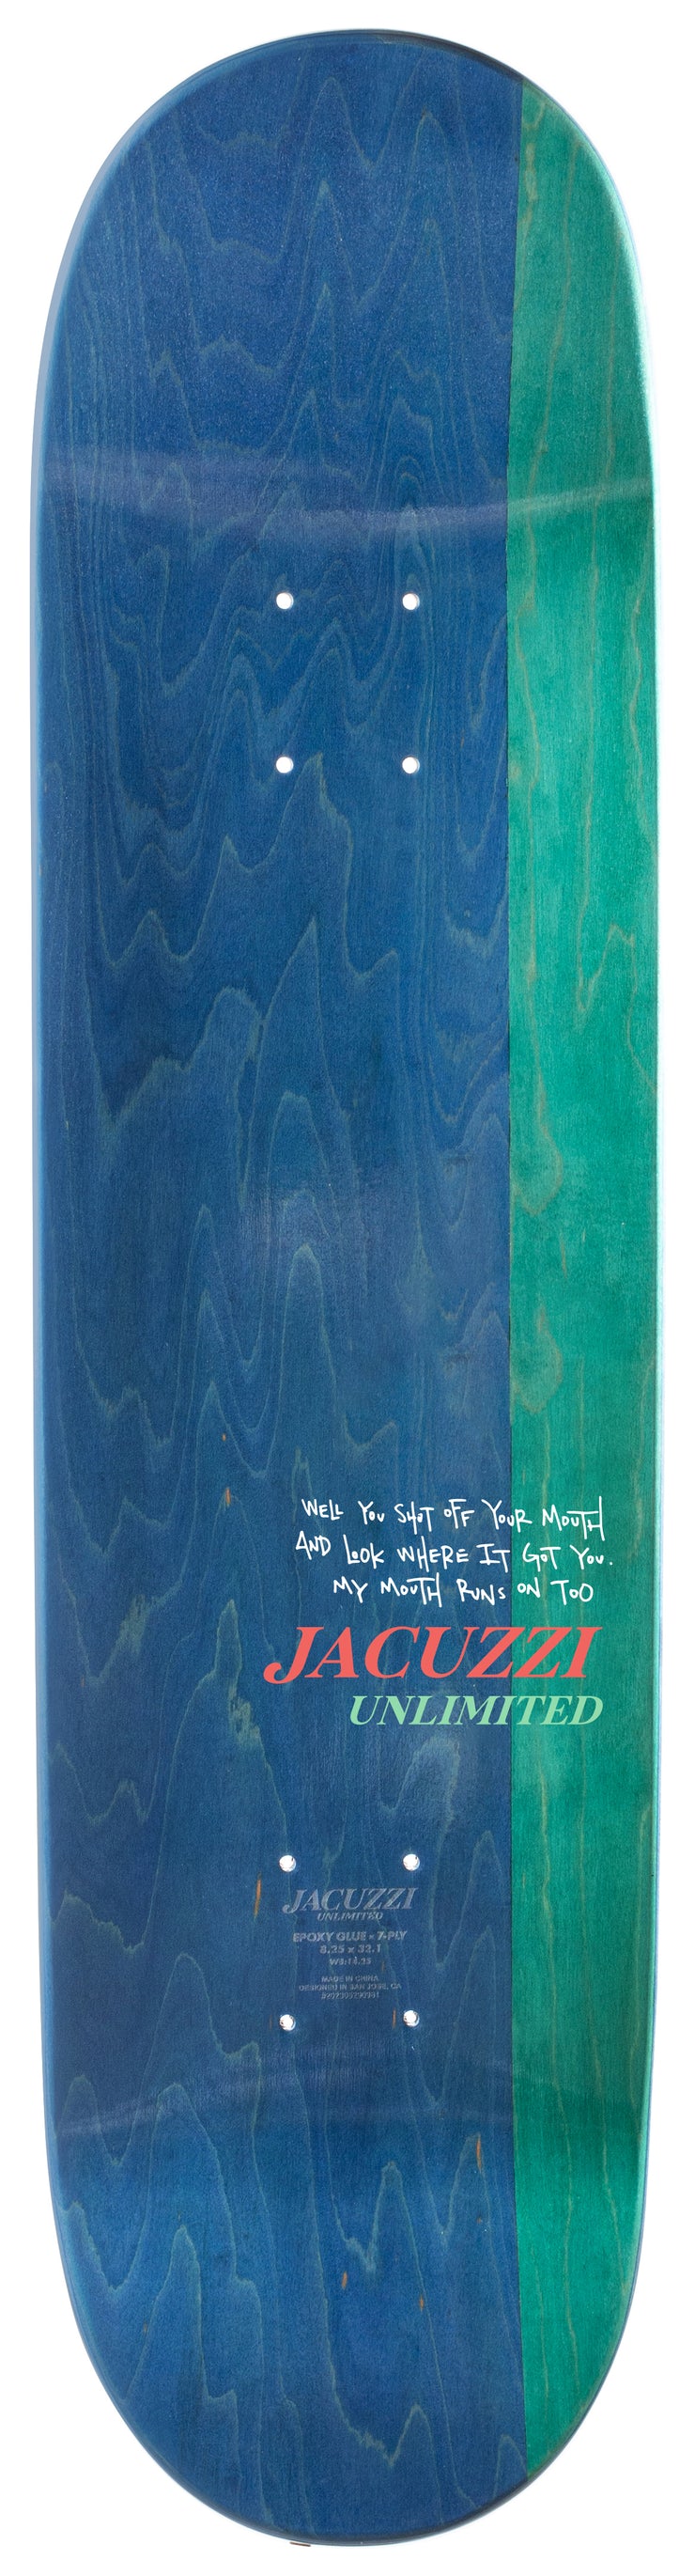 WELL YOU SHUT OFF YOUR MOUTH
AND LOOK WHERE IT GOT YOU.
MY MOUTH RUNS ON TOO
JACUZZI
UNLIMITED
JACUZZI
UNLIMITED
EPOXY GLUE • 7-PLY
8.25 x 32.1
MADE IN CHINA
DESIGNED IN SAN JOSE, CA